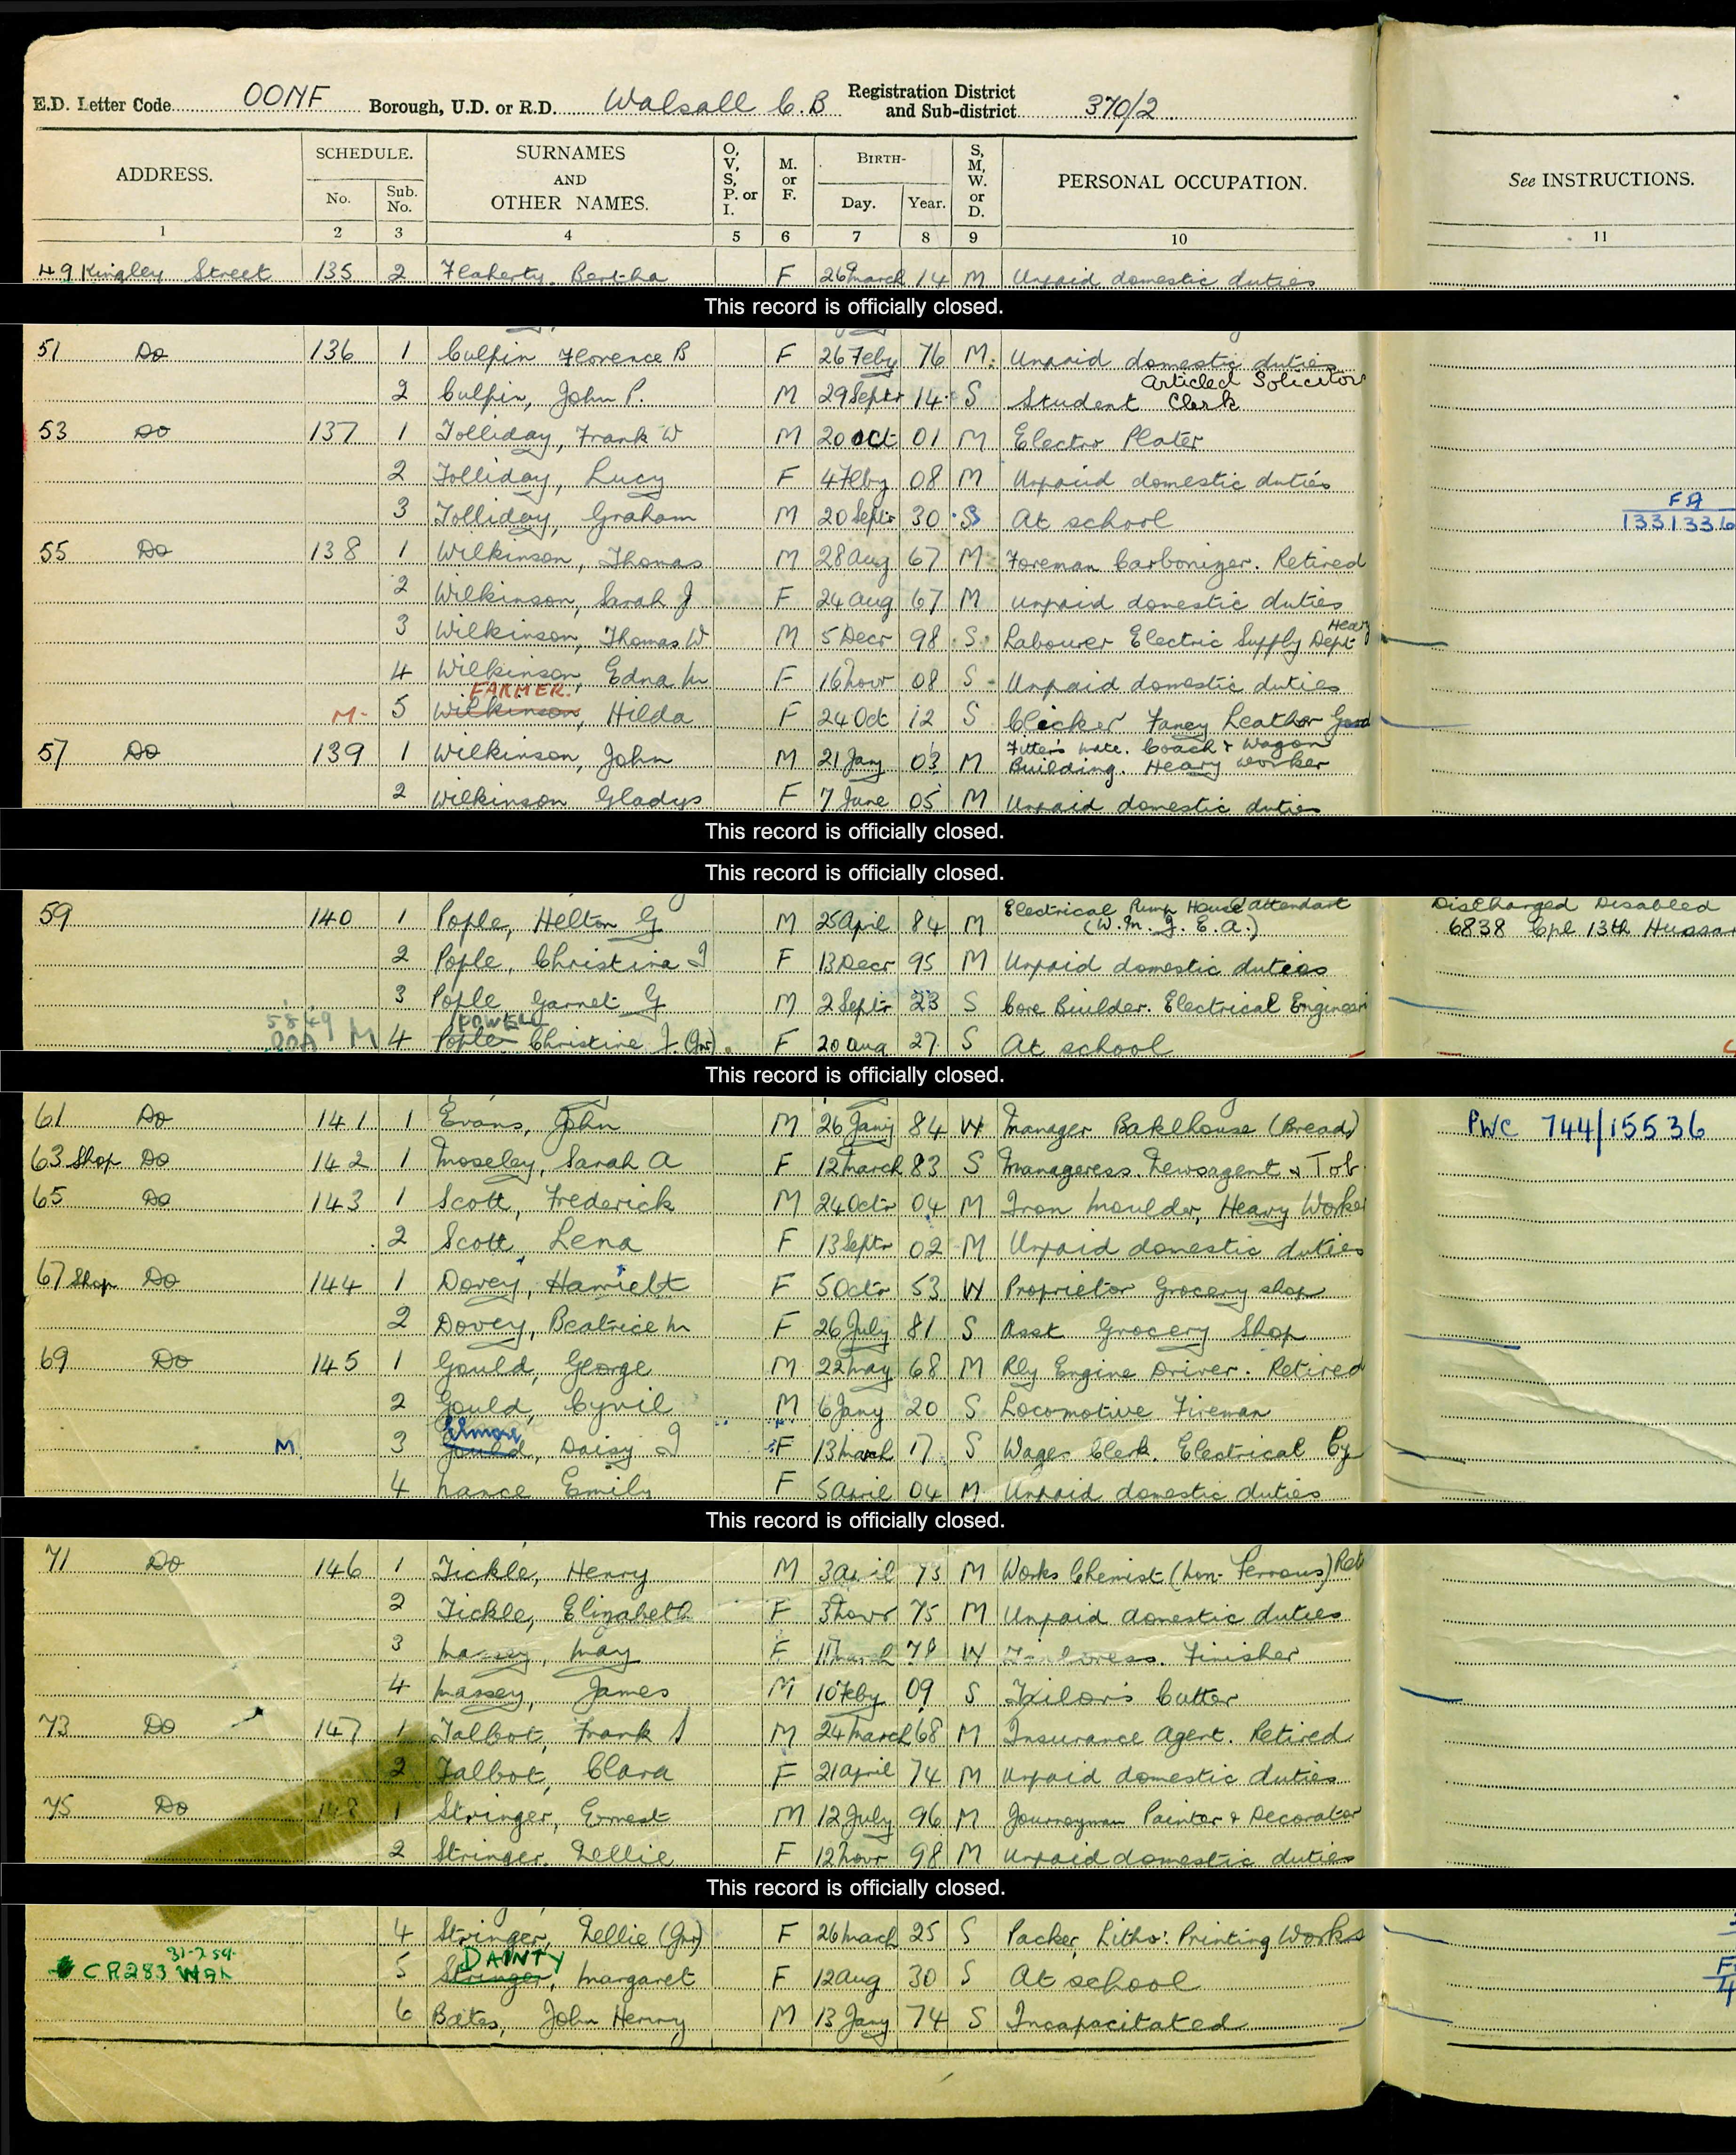 E.D. Letter Code OONF Borough, U.D. or R.D. Walsall C.B Registration District and Sub-district 370/2
ADDRESS. SCHEDULE. No. Sub. No. SURNAMES AND OTHER NAMES. O, V, S, P. or I. M. or F. BIRTH- Day. Year. S, M, W. or D. PERSONAL OCCUPATION. See INSTRUCTIONS.
1 2 3 4 5 6 7 8 9 10 11
49 Kingley Street 135 2 Flaherty, Bertha F 26 March 14 M Unpaid domestic duties
This record is officially closed.
51 Do 136 1 Culpin Florence B F 26 Feby 76 M Unpaid domestic duties
2 Culpin, John P. M 29 Septr 14 S Student Articled Solicitors Clerk
53 Do 137 1 Tolliday, Frank W M 20 Oct 01 M Electro Plater
2 Tolliday, Lucy F 4 Feby 08 M Unpaid domestic duties
3 Tolliday, Graham M 20 Septr 30 S At school FA 133133.6
55 Do 138 1 Wilkinson, Thomas M 28 Aug 67 M Foreman Carbonizer. Retired
2 Wilkinson, Sarah J F 24 Aug 67 M Unpaid domestic duties
3 Wilkinson, Thomas W M 5 Decr 98 S Labourer Electric Supply Dept Heavy
4 Wilkinson, Edna M F 16 Novr 08 S Unpaid domestic duties
FARMER.
M. 5 Wilkinson, Hilda F 24 Oct 12 S Clicker Fancy Leather Good
57 Do 139 1 Wilkinson, John M 21 Jany 03 M Fitters Mate. Coach & Wagon Building. Heavy Worker
2 Wilkinson Gladys F 7 June 05 M Unpaid domestic duties
This record is officially closed.
This record is officially closed.
59 140 1 Pople, Helton G M 25 April 84 M Electrical Pump House Attendant (W. M. J. E. A.) Discharged Disabled 6838 Cpl 13th Hussar
2 Pople, Christina I F 13 Decr 95 M Unpaid domestic duties
3 Pople Garnet G M 2 Septr 23 S Core Builder. Electrical Engineeri
5849 POWELL
20A M 4 Pople Christine J. (Jnr). F 20 Aug 27 S At school
This record is officially closed.
61 Do 141 1 Evans, John M 26 Jany 84 W Manager Bakehouse (Bread) PWC 744/15536
63 Shop Do 142 1 Moseley, Sarah A F 12 March 83 S Manageress. Newsagent & Tob.
65 Do 143 1 Scott, Frederick M 24 Octr 04 M Iron Moulder, Heavy Worker
2 Scott, Lena F 13 Septr 02 M Unpaid domestic duties
67 Shop Do 144 1 Dovey, Harriett F 5 Octr 53 W Proprietor Grocery shop
2 Dovey, Beatrice M F 26 July 81 S Asst Grocery Shop
69 Do 145 1 Gould, George M 22 May 68 M Rly Engine Driver. Retired
2 Gould, Cyril M 6 Jany 20 S Locomotive Fireman
Elmore
M. 3 Gould, Daisy I F 13 March 17 S Wages Clerk. Electrical Cy
4 Nance Emily F 5 April 04 M Unpaid domestic duties
This record is officially closed.
71 Do 146 1 Tickle, Henry M 3 April 73 M Works Chemist (Non-Ferrous) Ret
2 Tickle, Elizabeth F 3 Novr 75 M Unpaid domestic duties
3 Massey, May F 11 March 78 W Tailoress. Finisher
4 Massey, James M 10 Feby 09 S Tailor's Cutter
73 Do 147 1 Talbot, Frank S M 24 March 68 M Insurance Agent. Retired
2 Talbot, Clara F 21 April 74 M Unpaid domestic duties
75 Do 148 1 Stringer, Ernest M 12 July 96 M Journeyman Painter & Decorator
2 Stringer, Nellie F 12 Novr 98 M Unpaid domestic duties
This record is officially closed.
4 Stringer, Nellie (Jnr) F 26 March 25 S Packer, Litho: Printing Works
31-7 59. DAINTY
CR283 WAL 5 Stringer, Margaret F 12 Aug 30 S At school
6 Bates, John Henry M 13 Jany 74 S Incapacitated